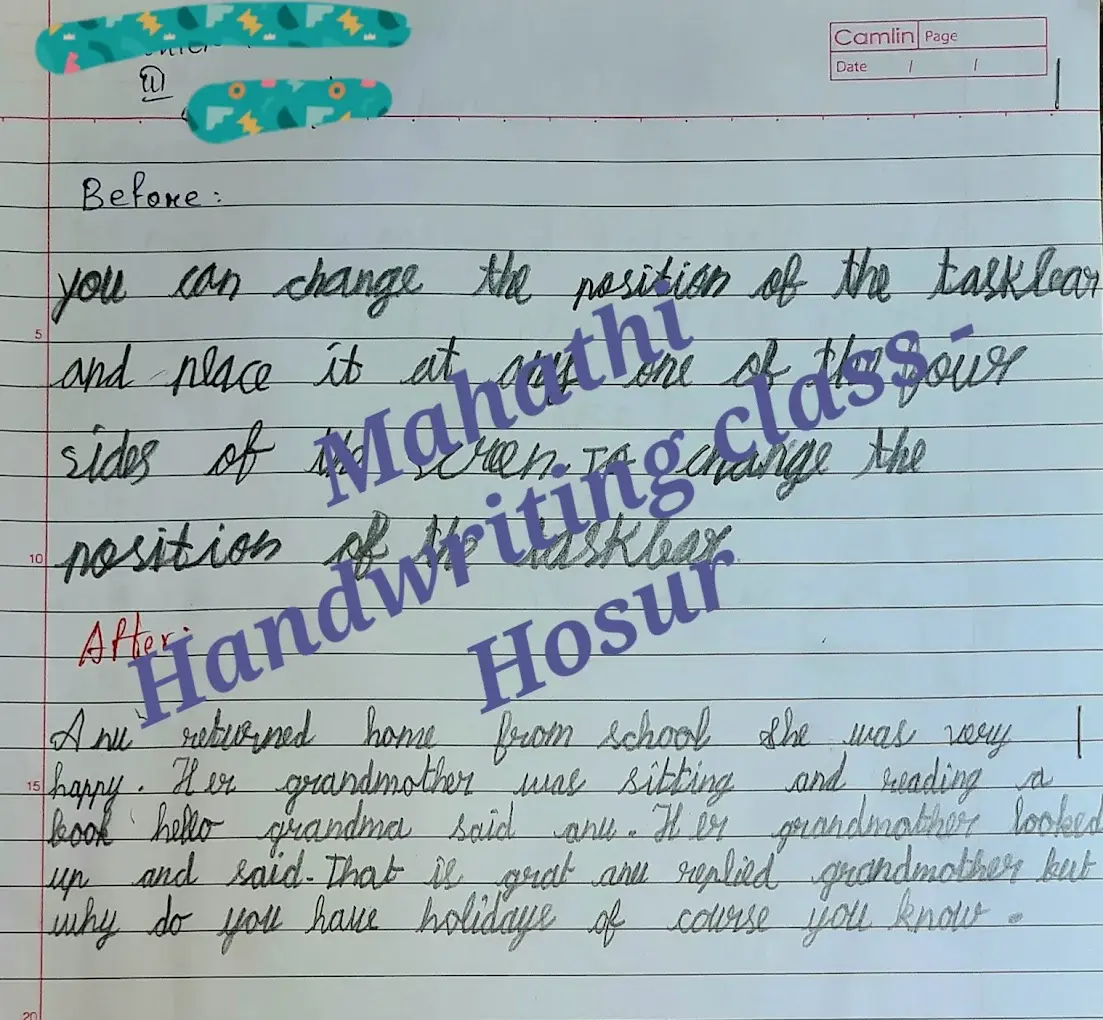 Camlin Page
Date / /
Before:
you can change the position of the taskbar
5
and place it at any one of the four
sides of the screen. To change the
10
position of the taskbar.
After:
Mahathi
Handwriting class -
Hosur
Anu returned home from school she was very
15
happy. Her grandmother was sitting and reading a
book hello grandma said anu. Her grandmother looked
up and said. That is grat anu replied grandmother but
why do you have holidays of course you know.
20